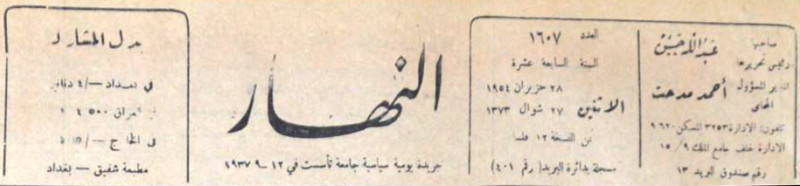 صاحبها
ورئيس تحريرها
عبدالله حسن
المدير المسؤول
المحامي
أحمد مدحت
تلفون: الادارة ٣٢٥٣ المسكن ٩٦٢٠
الادارة خلف جامع الملك ١٥/٩
رقم صندوق البريد ١٣
العدد ١٦٠٧
السنة السابعة عشرة
الاثنين
٢٨ حزيران ١٩٥٤
٢٧ شوال ١٣٧٣
ثمن النسخة ١٢ فلسا
مسجلة بدائرة البريد (رقم ٤٠١)
النهار
جريدة يومية سياسية جامعة تأسست في ١٢-٩-١٩٣٧
بدل المشارك
في بغداد -/٤ دنانير
العراق ٤٥٠٠
في الخارج -/٥
مطبعة شفيق - بغداد